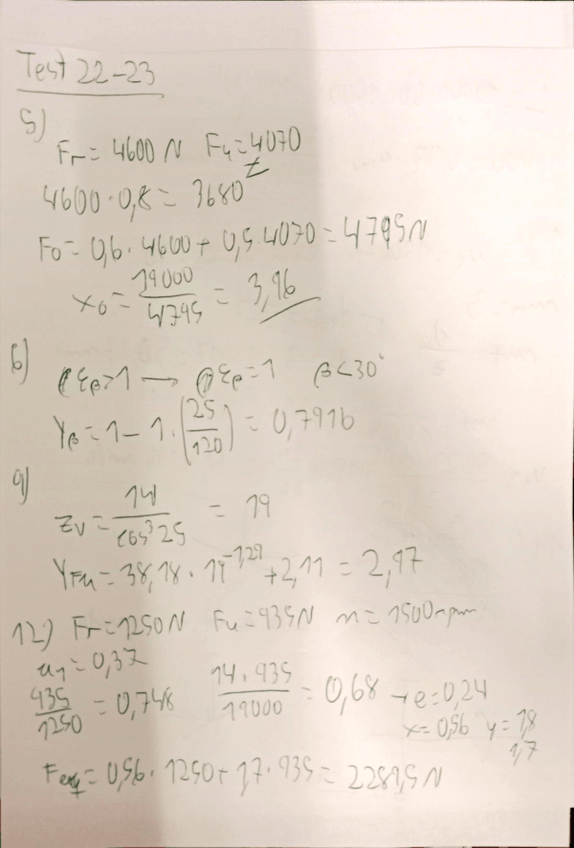 Test 22-23
5)
Fr = 4600 N Fa = 4070
4600 · 0,8 = 3680
F0 = 0,6 · 4600 + 0,5 · 4070 = 4795 N
x0 = 19000 / 4795 = 3,96
6) εβ>1 → εβ=1 β<30°
Yβ = 1 - 1 · (25 / 120) = 0,7916
9)
Zv = 14 / cos³ 25 = 19
YFa = 38,18 · 19^-1,29 + 2,11 = 2,97
12) Fr = 1250 N Fa = 935 N n = 1500 rpm
a1 = 0,37
935 / 1250 = 0,748 14 · 935 / 19000 = 0,68 → e = 0,24
x = 0,56 y = 1,8
1,7
Feq = 0,56 · 1250 + 1,7 · 935 = 2289,5 N